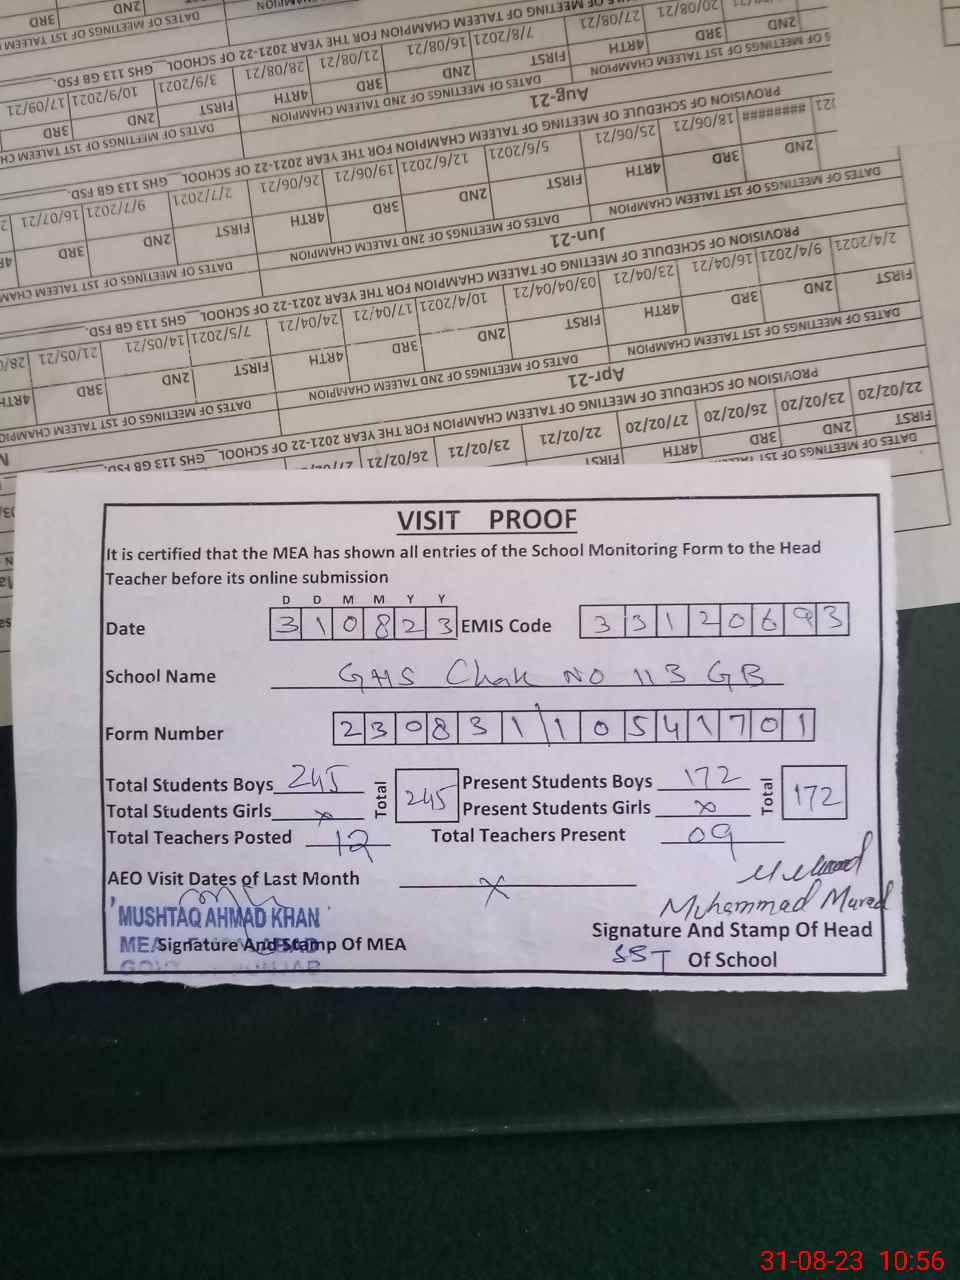 VISIT PROOF
It is certified that the MEA has shown all entries of the School Monitoring Form to the Head
Teacher before its online submission
D D M M Y Y
Date 3 1 0 8 2 3 EMIS Code 3 3 1 2 0 6 9 3
School Name GHS Chak NO 113 GB
Form Number 2 3 0 8 3 1 1 0 5 4 1 7 0 1
Total Students Boys 245 Total 245 Present Students Boys 172 Total 172
Total Students Girls x Present Students Girls x
Total Teachers Posted 12 Total Teachers Present 09
AEO Visit Dates of Last Month x
Muhammad Murad
MUSHTAQ AHMAD KHAN
Signature And Stamp Of Head
MEA Signature And Stamp Of MEA
SST Of School
FIRST 2ND 3RD 4RTH FIRST
22/02/20 23/02/20 26/02/20 27/02/20 22/02/21 23/02/21 26/02/21
PROVISION OF SCHEDULE OF MEETING OF TALEEM CHAMPION FOR THE YEAR 2021-22 OF SCHOOL__GHS 113 GB FSD.
Apr-21
DATES OF MEETINGS OF 1ST TALEEM CHAMPION DATES OF MEETINGS OF 2ND TALEEM CHAMPION DATES OF MEETINGS OF 1ST TALEEM CHAMPION
FIRST 2ND 3RD 4RTH FIRST 2ND 3RD 4RTH FIRST 2ND 3RD 4RTH
2/4/2021 9/4/2021 16/04/21 23/04/21 03/04/21 10/4/2021 17/04/21 24/04/21 7/5/2021 14/05/21 21/05/21
PROVISION OF SCHEDULE OF MEETING OF TALEEM CHAMPION FOR THE YEAR 2021-22 OF SCHOOL__GHS 113 GB FSD.
Jun-21
DATES OF MEETINGS OF 1ST TALEEM CHAMPION DATES OF MEETINGS OF 2ND TALEEM CHAMPION DATES OF MEETINGS OF 1ST TALEEM
2ND 3RD 4RTH FIRST 2ND 3RD 4RTH FIRST 2ND 3RD
######## 18/06/21 25/06/21 5/6/2021 12/6/2021 19/06/21 26/06/21 2/7/2021 9/7/2021 16/07/21
PROVISION OF SCHEDULE OF MEETING OF TALEEM CHAMPION FOR THE YEAR 2021-22 OF SCHOOL__GHS 113 GB FSD.
Aug-21
OF MEETINGS OF 1ST TALEEM CHAMPION DATES OF MEETINGS OF 2ND TALEEM CHAMPION DATES OF MEETINGS OF 1ST TALEEM
2ND 3RD 4RTH FIRST 2ND 3RD 4RTH FIRST 2ND 3RD
20/08/21 27/08/21 7/8/2021 16/08/21 21/08/21 28/08/21 3/9/2021 10/9/2021 17/09/21
OF MEETING OF TALEEM CHAMPION FOR THE YEAR 2021-2022 OF SCHOOL__GHS 113 GB FSD.
DATES OF MEETINGS OF 1ST TALEEM
2ND 3RD
31-08-23 10:56